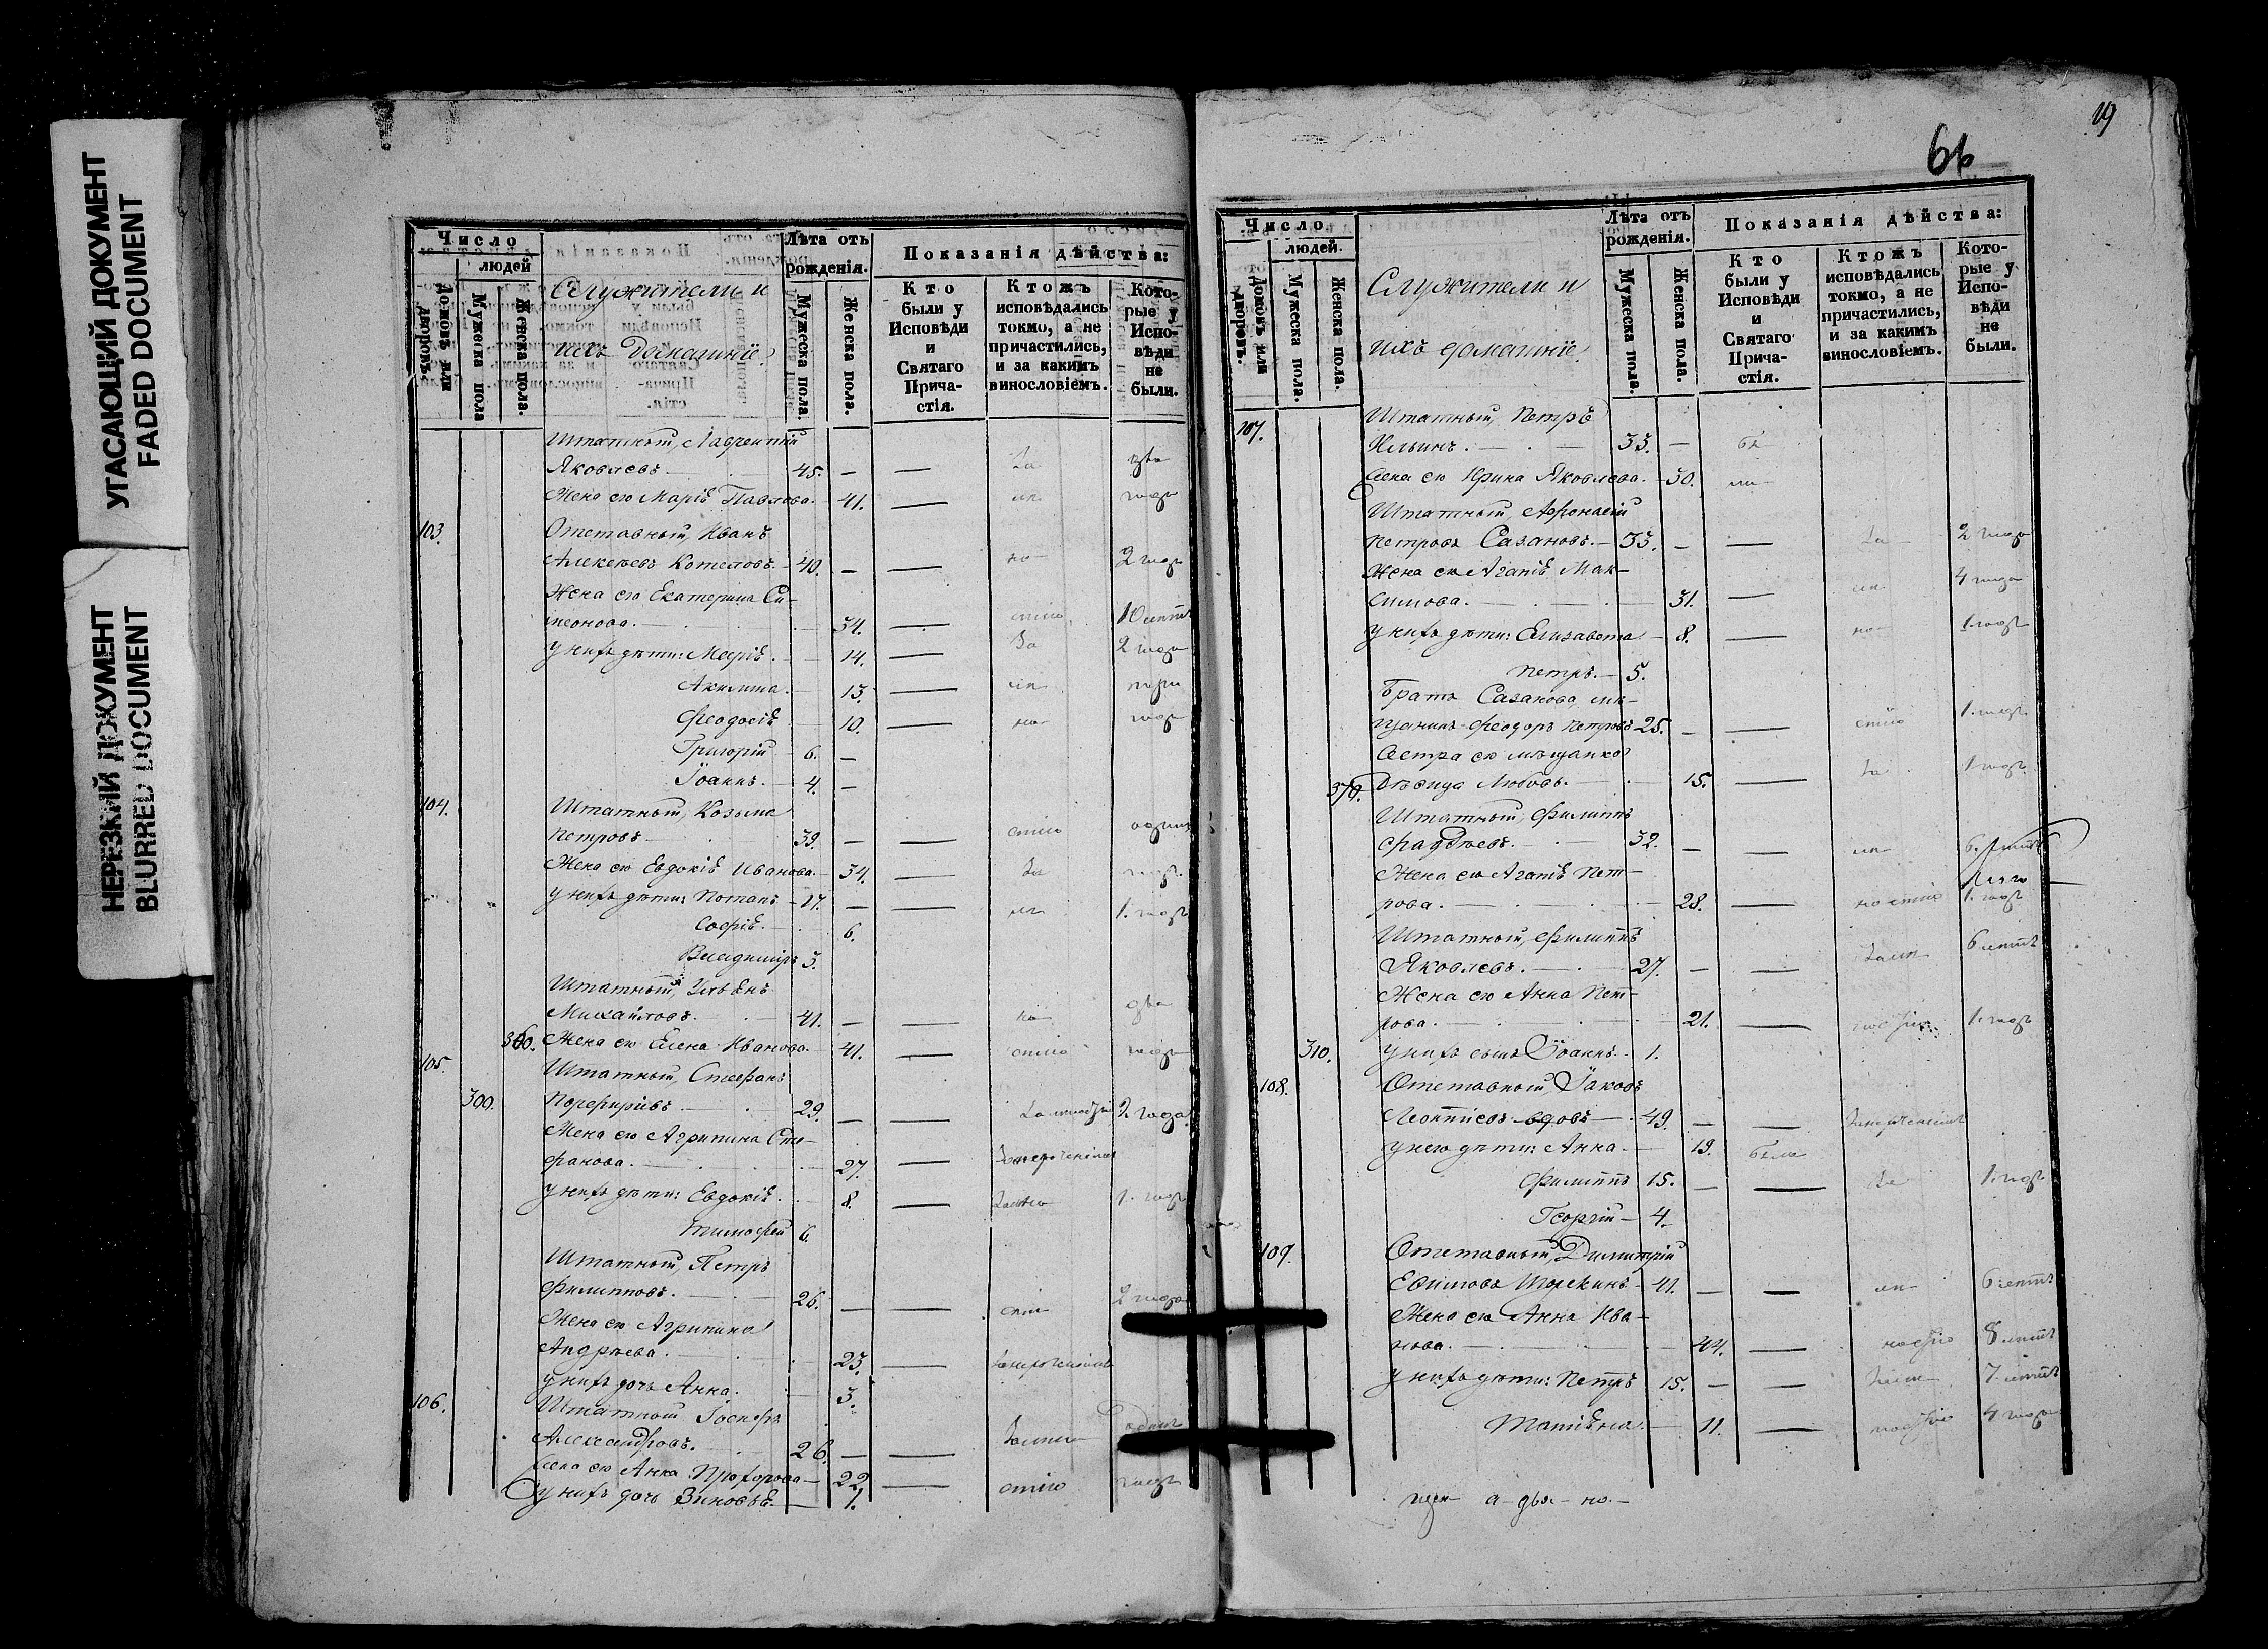 УГАСАЮЩИЙ ДОКУМЕНТ
FADED DOCUMENT
НЕРЕЗКИЙ ДОКУМЕНТ
BLURRED DOCUMENT
Число
людей
Домовъ или дворовъ.
Мужеска пола
Женска пола.
Служители и
ихъ домашніе
Лѣта отъ рожденія.
Мужеска пола.
Женска пола.
Показанія дѣйства:
Кто были у Исповѣди и Святаго Причастія.
Ктожъ исповѣдались токмо, а не причастились, и за какимъ винословіемъ.
Которые у Исповѣди не были.
Штатный, Лаврентій
Яковлевъ 45. за два
Жена его Марія Павлова. 41.
103. Отставный, Иванъ
Алексѣевъ 40. 2 года
Жена его Екатерина Си-
меонова. 34.
у нихъ дѣти: Марія. 14. за 2 года
Акилина. 13. три
Феодосія 10.
Григорій 6.
Іоаннъ. 4.
104. Штатный, Козьма
Петровъ 39. одинъ
Жена его Евдокія Иванова. 34. за годъ
у нихъ дѣти: Потапъ 17. 1. годъ
Софія. 6.
Владиміръ 3.
Штатный,
Михайловъ. 41. два
360. Жена его Елена Иванова. 41.
105. Штатный, Стефанъ
300. Порфирьевъ 29. 2 года
Жена его Агрипина Сте-
фанова. 27.
у нихъ дѣти: Евдокія. 8. 1. годъ
Тимофей 6.
Штатный, Петръ
Филипповъ. 26. 2 года
Жена его Агрипина
Андреева. 23.
у нихъ дочь Анна. 3.
106. Штатный Іосифъ
Александровъ. 26.
Жена его Анна Прохорова 22. годъ
у нихъ дочь Зиновья. 1.
19
66
Число
людей.
Домовъ или дворовъ.
Мужеска пола.
Женска пола.
Служители и
ихъ домашніе
Лѣта отъ рожденія.
Мужеска пола.
Женска пола.
Показанія дѣйства:
Кто были у Исповѣди и Святаго Причастія.
Ктожъ исповѣдались токмо, а не причастились, и за какимъ винословіемъ.
Которые у Исповѣди не были.
107. Штатный, Петръ
Ильинъ. 33. бы
Жена его Ирина Яковлева. 30. ли
Штатный, Афонасій
Петровъ Сазановъ. 33. за 2 года
Жена его Агапія Мак-
симова. 31. 4 года
у нихъ дѣти: Елизавета 8. 1 годъ
Петръ. 5.
Братъ Сазанова мѣ-
щанинъ Феодоръ Петровъ 25. 1. годъ
Сестра его мѣщанка
370. Дѣвица Любовь. 15. за 1 годъ
Штатный, Филиппъ
Фаддѣевъ. 32.
Жена его Агапія Пет-
рова. 28. 1. годъ
Штатный, Филиппъ
Яковлевъ. 27. 6 лѣтъ
Жена его Анна Пет-
рова. 21. 1. годъ
310. у нихъ сынъ Іоаннъ. 1.
108. Отставный, Іаковъ
Леонтіевъ вдовъ 49.
у него дѣти: Анна 19. была
Филиппъ 15. за 1. годъ
Георгій 4.
109. Отставный, Димитрій
Ефимовъ 41. 6 лѣтъ
Жена его Анна Ива-
нова. 44. 8 лѣтъ
у нихъ дѣти: Петръ 15. 7 лѣтъ
Татіяна. 11. 4 года